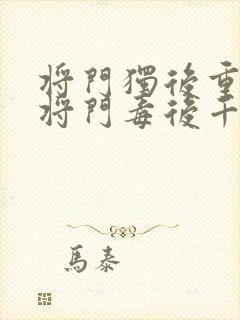 將門獨後重
將門毒後千
馬泰